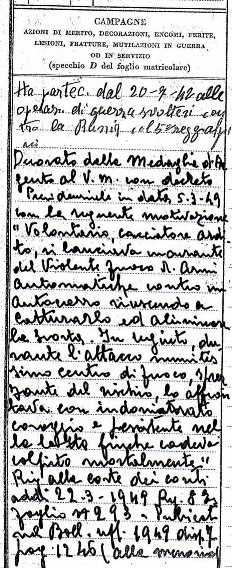 CAMPAGNE
AZIONI DI MERITO, DECORAZIONI, ENCOMI, FERITE,
LESIONI, FRATTURE, MUTILAZIONI IN GUERRA
OD IN SERVIZIO
(specchio D del foglio matricolare)
Ha partec. dal 20-7-42 alle
operaz. di guerra svoltesi con
tro la Russia
Decorato della Medaglia di Ar
gento al V. M. con decreto
Presidenziale in data 5.3.49
con la seguente motivazione
"Volontario, cacciatore ardi
to, si lanciava incurante
del violento fuoco di armi
automatiche contro un
autocarro riuscendo a
catturarlo ed eliminare
la scorta. In seguito, du
rante l'attacco munitis
simo centro di fuoco, sprez
zante del rischio, lo affron
tava con indomabile
coraggio e persisteva nel
la lotta finché cadeva
colpito mortalmente"
Reg. alla corte dei conti
addì 22.3-1949 Reg. 8
foglio n° 293 - Pubblicat
nel Boll. uff. 1949 disp. 7
pag. 1246 (alla memoria)